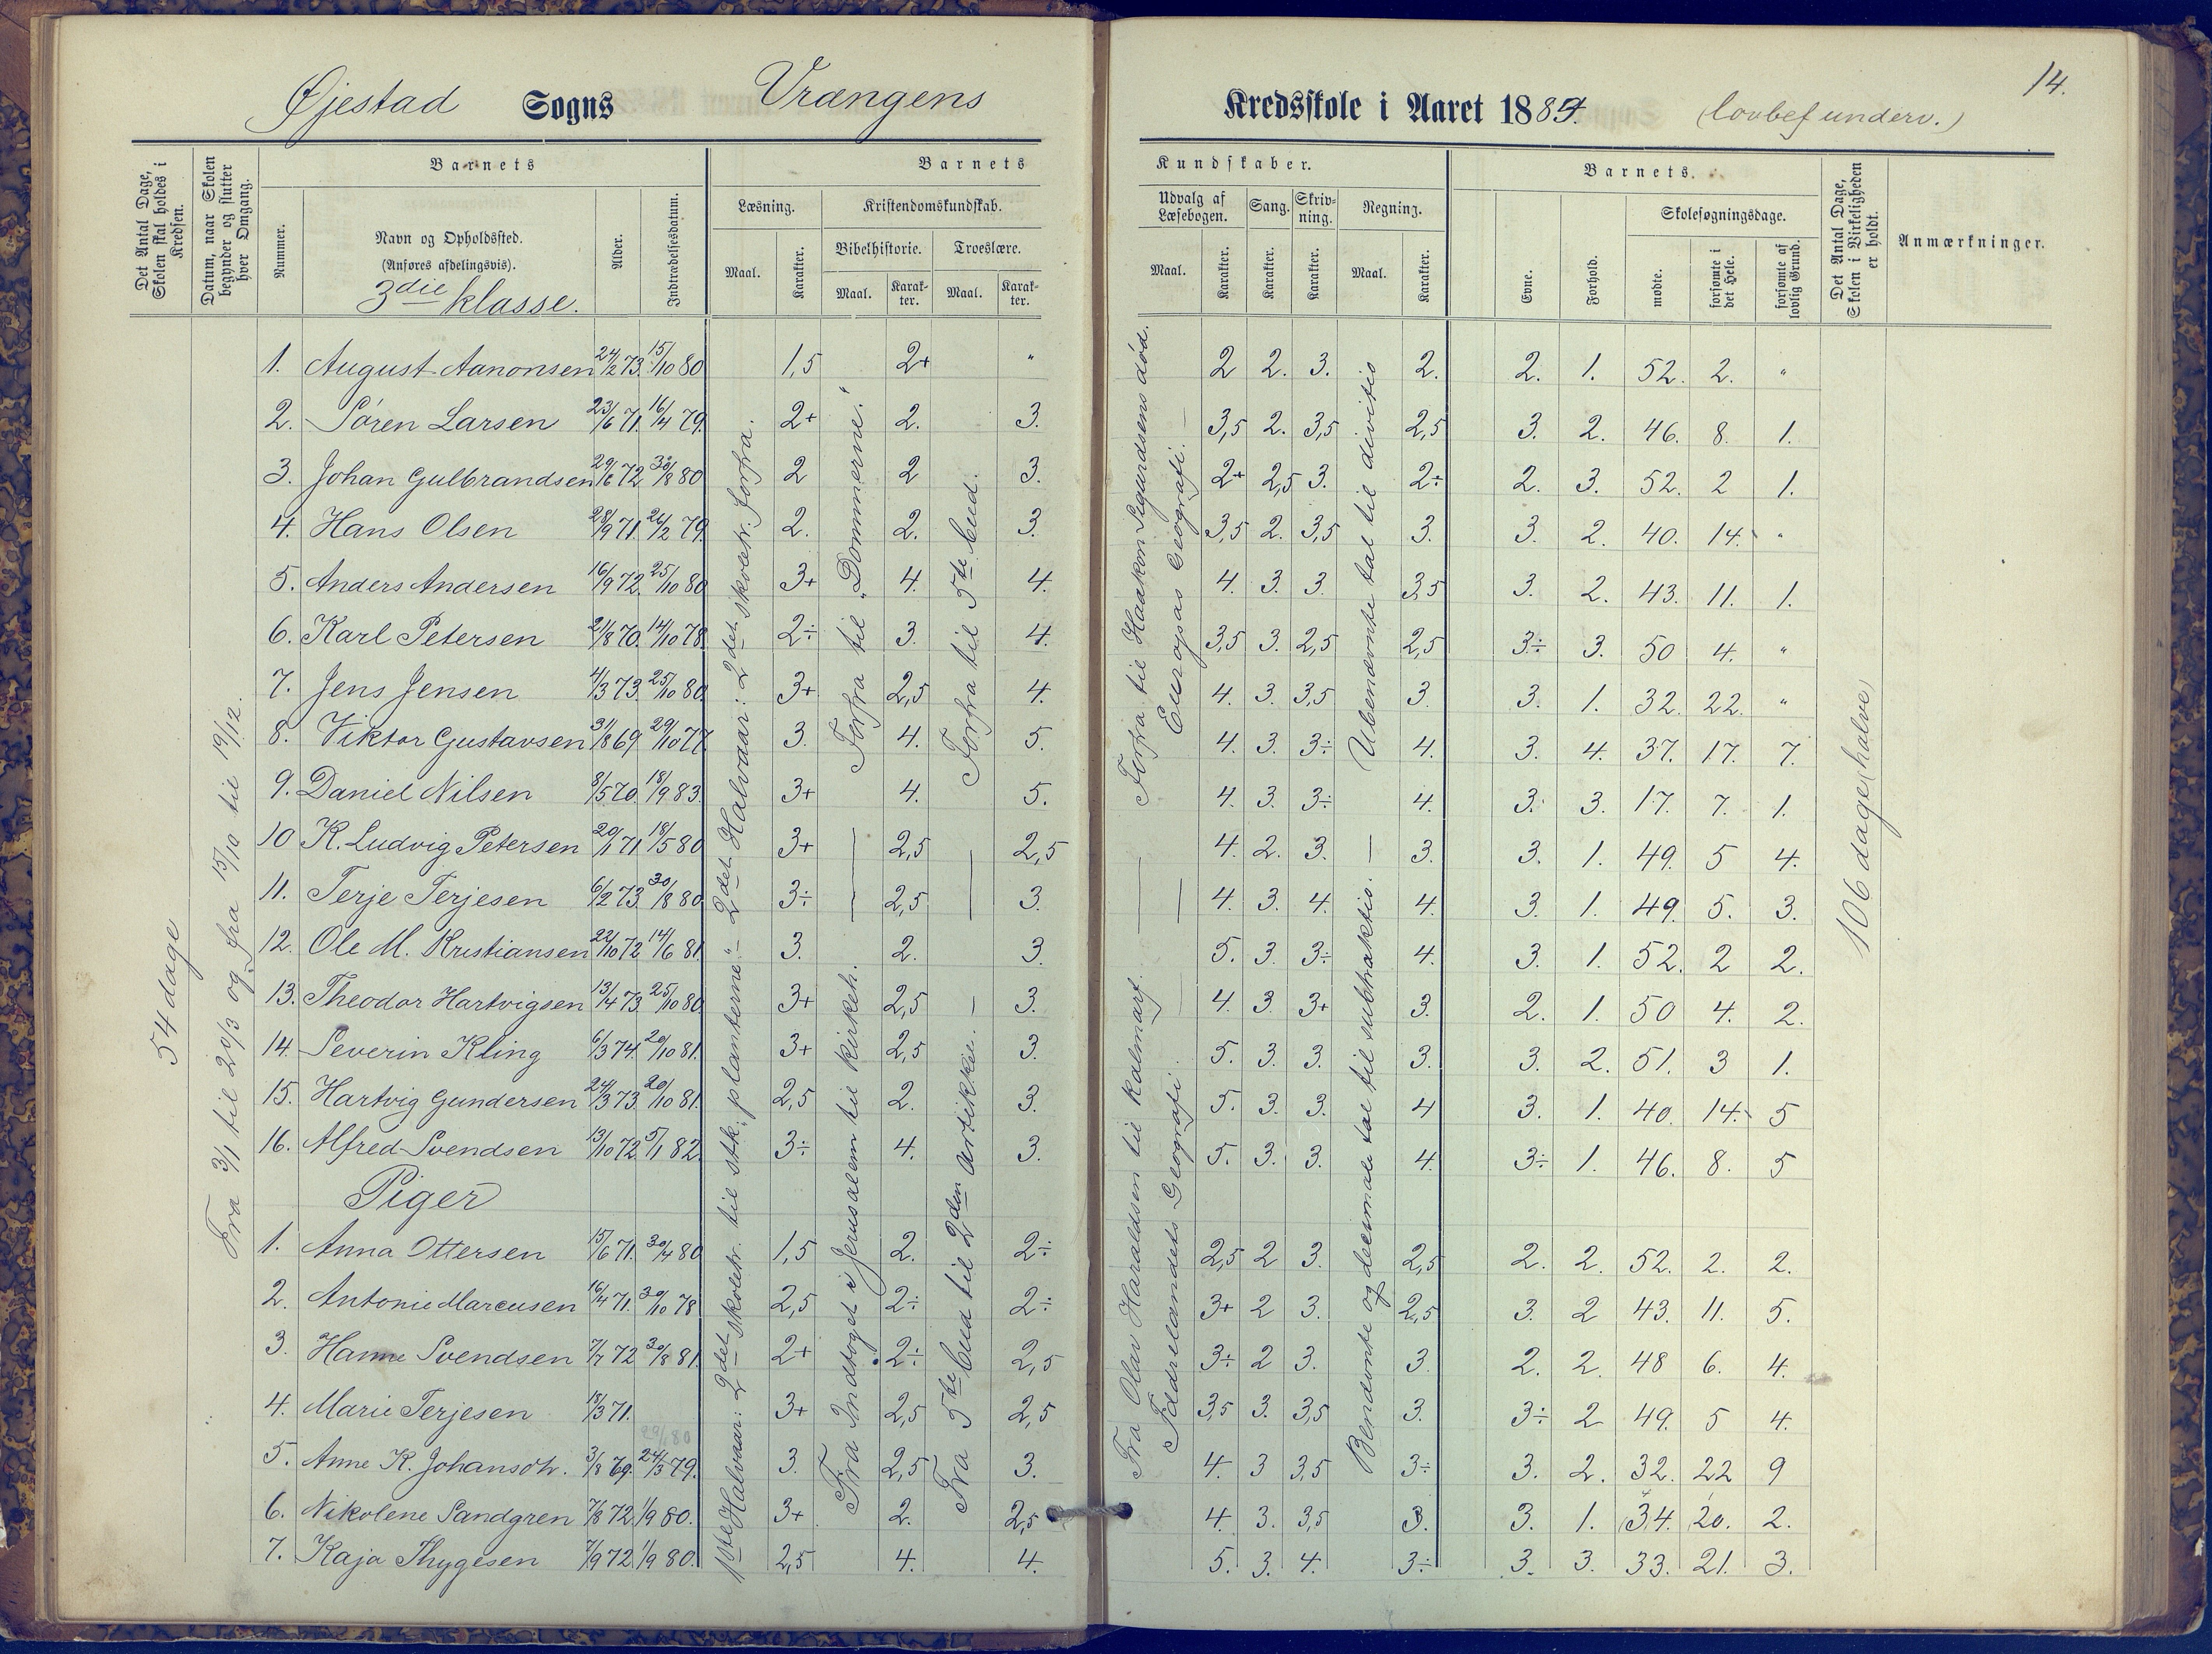 14.
Øjestad Sogns Vrængens Kredsskole i Aaret 1884. (lovbef underv.)
Det Antal Dage, Skolen skal holdes i Kredsen.
Datum, naar Skolen begynder og slutter hver Omgang.
Barnets
Nummer.
Navn og Opholdssted.
(Anføres afdelingsvis).
3die klasse.
Alder.
Indtrædelsesdatum.
Barnets Kundskaber.
Læsning.
Maal.
Karakter.
Kristendomskundskab.
Bibelhistorie.
Maal.
Karakter.
Troeslære.
Maal.
Karakter.
Udvalg af Læsebogen.
Maal.
Karakter.
Sang.
Karakter.
Skrivning.
Karakter.
Regning.
Maal.
Karakter.
Barnets.
Evne.
Forhold.
Skolesøgningsdage.
mødte.
forsømte i det Hele.
forsømte af lovlig Grund.
Det Antal Dage, Skolen i Virkeligheden er holdt.
Anmærkninger.
54 dage
Fra 3/1 til 20/3 og fra 15/10 til 19/12.
1ste Halvaar: 2det skoletr. til stk. "planterne" - 2det Halvaar: 2det skoletr. forfra.
Fra Indtoget i Jerusalem til kirkeh.
Forfra til "Dommerne."
Fra 5te bud til 2den artikkel.
Forfra til 5te bud.
Fra Olav Haraldsen til Kalmarf.
Fædrelandets Geografi.
Forfra til Haakon Sigurdsens død.
Europas Geografi.
Benævnte og decimale tal til subtraktio.
Ubenævnte tal til divitio
106 dage (halve)
1. August Aanonsen 24/2 73. 15/10 80 1,5 2+ " 2 2. 3. 2. 2. 1. 52. 2. "
2. Søren Larsen 23/6 71. 16/4 79. 2+ 2. 3. 3,5 2. 3,5 2,5 3. 2. 46. 8. 1.
3. Johan Gulbrandsen 29/6 72 30/8 80 2 2 3. 2+ 2,5 3. 2÷ 2. 3. 52. 2 1.
4. Hans Olsen 28/9 71. 26/2 79. 2. 2. 3. 3,5 2. 3,5 3. 3. 2. 40. 14. "
5. Anders Andersen 16/9 72. 25/10 80 3+ 4. 4. 4. 3. 3. 3,5 3. 2. 43. 11. 1.
6. Karl Petersen 21/8 70. 14/10 78. 2÷ 3. 4. 3,5 3. 2,5 2,5 3÷ 3. 50 4. "
7. Jens Jensen 4/3 73. 25/10 80. 3+ 2,5 4. 4. 3. 3,5 3. 3. 1. 32. 22. "
8. Viktor Gustavsen 31/8 69 29/10 77 3. 4. 5. 4. 3. 3÷ 4. 3. 4. 37. 17. 7.
9. Daniel Nilsen 8/5 70. 18/9 83. 3+ 4. 5. 4. 3. 3÷ 4. 3. 3. 17. 7. 1.
10 K. Ludvig Petersen 20/1 71 18/5 80 3+ 2,5 2,5 4. 2. 3. 3. 3. 1. 49. 5 4.
11. Terje Terjesen 6/2 73 30/8 80 3÷ 2,5 3. 4. 3. 4. 4. 3. 1. 49. 5. 3.
12. Ole M. Kristiansen 22/10 72 14/6 81. 3. 2. 3. 5. 3. 3÷ 4. 3. 1. 52. 2 2.
13. Theodor Hartvigsen 13/4 73. 25/10 80. 3+ 2,5 3. 4. 3 3+ 3. 2. 1. 50 4. 2.
14. Severin Kling 6/3 74. 20/10 81. 3+ 2,5 3. 5. 3. 3. 3. 3. 2. 51. 3 1.
15. Hartvig Gundersen 24/3 73. 20/10 81. 2,5 2. 3. 5. 3. 3. 4 3. 1. 40. 14. 5
16. Alfred Svendsen 13/10 72. 5/1 82. 3÷ 4. 3. 5. 3. 3. 4. 3÷ 1. 46. 8. 5
Piger
1. Anna Ottersen 15/6 71. 30/4 80 1,5 2. 2÷ 2,5 2 3. 2,5 2. 2. 52. 2. 2.
2. Antonie Marcusen 16/4 71. 30/10 78 2,5 2÷ 2÷ 3+ 2 3. 2,5 3. 2 43. 11. 5.
3. Hanne Svendsen 7/7 72 30/8 81. 2+ 2÷ 2,5 3÷ 2 3. 3. 2. 2. 48 6. 4.
4. Marie Terjesen 18/3 71. 3+ 2,5 2,5 3,5 3. 3,5 3. 3÷ 2 49. 5 4.
5. Anne K. Johansdtr. 3/8 69. 24/3 79. 3. 2,5 3. 4. 3 3,5 3÷ 3. 2. 32. 22 9
6. Nikolene Sandgren 7/8 72. 1/9 80. 3+ 2. 2,5 4. 3. 3,5 3. 3. 1. 34. 20. 2.
7. Kaja Thygesen 7/9 72 1/9 80. 2,5 4. 4. 5. 3. 4. 3÷ 3. 3. 33. 21. 3.